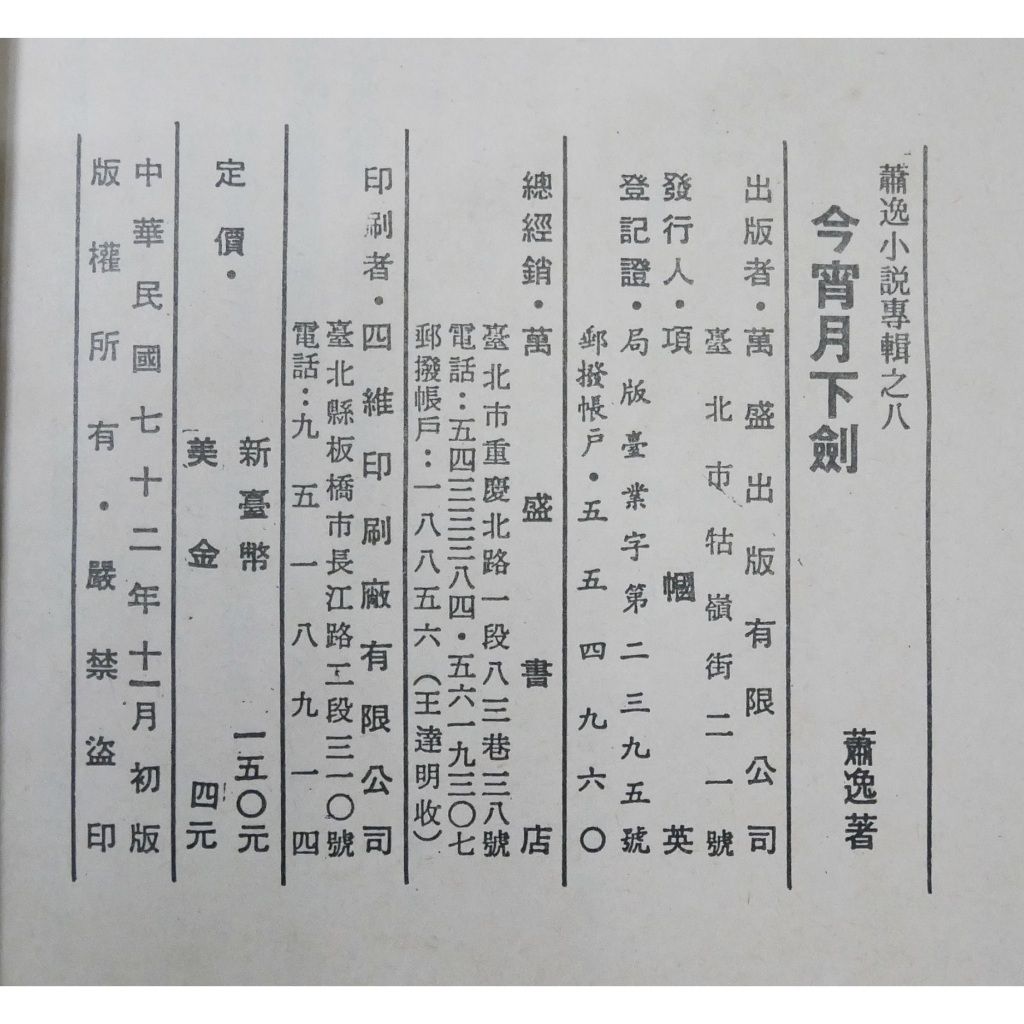 蕭逸小説專輯之八
今宵月下劍
蕭逸著
出版者・萬盛出版有限公司
臺北市牯嶺街二一號
發行人・項幗英
登記證・局版臺業字第二三九五號
郵撥帳戶・五五四九六〇
總經銷・萬盛書店
臺北市重慶北路一段八三巷三八號
電話：五四三三三八四・五六一九三〇七
郵撥帳戶：一八八五六（王達明收）
印刷者・四維印刷廠有限公司
臺北縣板橋市長江路二段三一〇號
電話：九五一八九一四
定價・
新臺幣一五〇元
美金四元
中華民國七十二年十一月初版
版權所有・嚴禁盜印